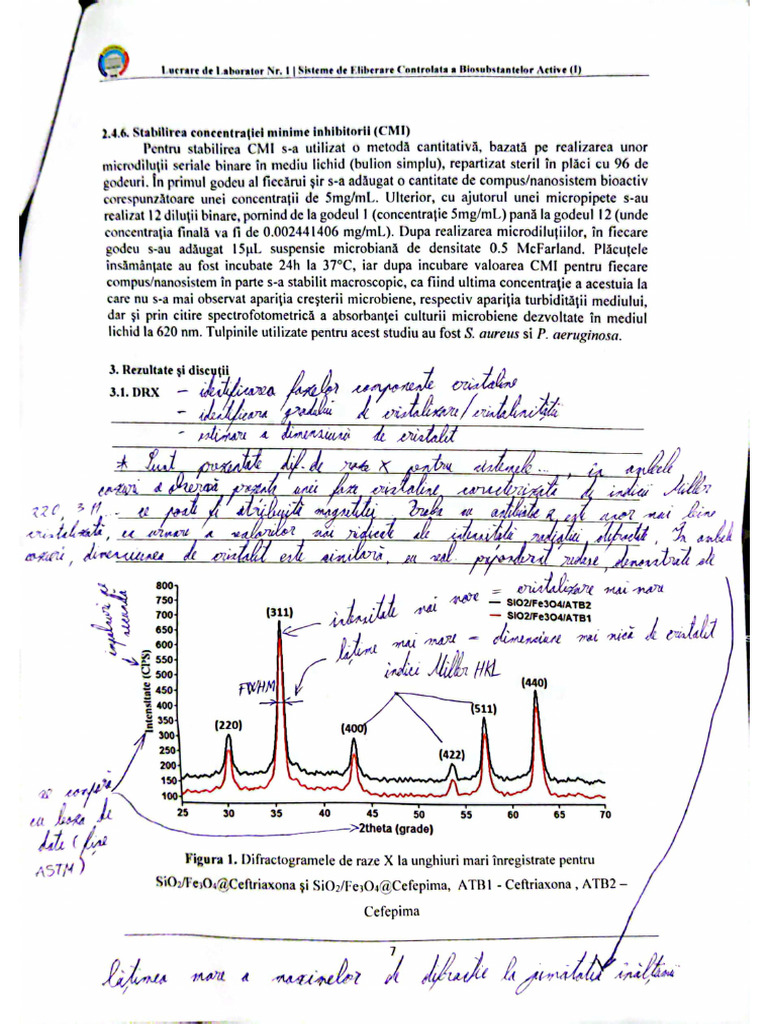 Lucrare de Laborator Nr. 1 | Sisteme de Eliberare Controlata a Biosubstantelor Active (I)
2.4.6. Stabilirea concentrației minime inhibitorii (CMI)
Pentru stabilirea CMI s-a utilizat o metodă cantitativă, bazată pe realizarea unor
microdiluții seriale binare în mediu lichid (bulion simplu), repartizat steril în plăci cu 96 de
godeuri. În primul godeu al fiecărui șir s-a adăugat o cantitate de compus/nanosistem bioactiv
corespunzătoare unei concentrații de 5mg/mL. Ulterior, cu ajutorul unei micropipete s-au
realizat 12 diluții binare, pornind de la godeul 1 (concentrație 5mg/mL) pană la godeul 12 (unde
concentrația finală va fi de 0.002441406 mg/mL). Dupa realizarea microdiluțiilor, în fiecare
godeu s-au adăugat 15µL suspensie microbiană de densitate 0.5 McFarland. Plăcuțele
însămânțate au fost incubate 24h la 37°C, iar dupa incubare valoarea CMI pentru fiecare
compus/nanosistem în parte s-a stabilit macroscopic, ca fiind ultima concentrație a acestuia la
care nu s-a mai observat apariția creșterii microbiene, respectiv apariția turbidității mediului,
dar și prin citire spectrofotometrică a absorbanței culturii microbiene dezvoltate în mediul
lichid la 620 nm. Tulpinile utilizate pentru acest studiu au fost S. aureus si P. aeruginosa.
3. Rezultate și discuții
3.1. DRX - identificarea fazelor componente cristaline
- identificara gradului de cristalizare/cristalinitatii
- estimare a dimensiunii de cristalit
* Sunt prezentate dif. de raze X pentru sistemele ..., în ambele
cazuri a observă prezența unei faze cristaline, caracterizată de indicii Miller
220, 311... ce poate fi atribuită magnetitei. Proba cu antibiotic 2 est ușor mai bine
cristalizată, ca urmare a valorilor mai ridicate ale intensitatii radiației difractate. În ambele
cazuri, dimensiunea de cristalit este similară, cu val. reduse, demonstrate de
impulsuri pe secundă
800
750
700
650
600
550
500
450
400
350
300
250
200
150
100
Intensitate (CPS)
(311)
intensitate mai mare = cristalizare mai mare
SiO2/Fe3O4/ATB2
SiO2/Fe3O4/ATB1
lățime mai mare = dimensiune mai mică de cristalit
indici Miller HKL
FWHM
(220)
(400)
(422)
(511)
(440)
25 30 35 40 45 50 55 60 65 70
2theta (grade)
se compară
cu baza de
date (fișe
ASTM)
Figura 1. Difractogramele de raze X la unghiuri mari înregistrate pentru
SiO₂/Fe₃O₄@Ceftriaxona și SiO₂/Fe₃O₄@Cefepima, ATB1 - Ceftriaxona , ATB2 –
Cefepima
7
lățimea mare a maximelor de difractie la jumătatea înălțimii